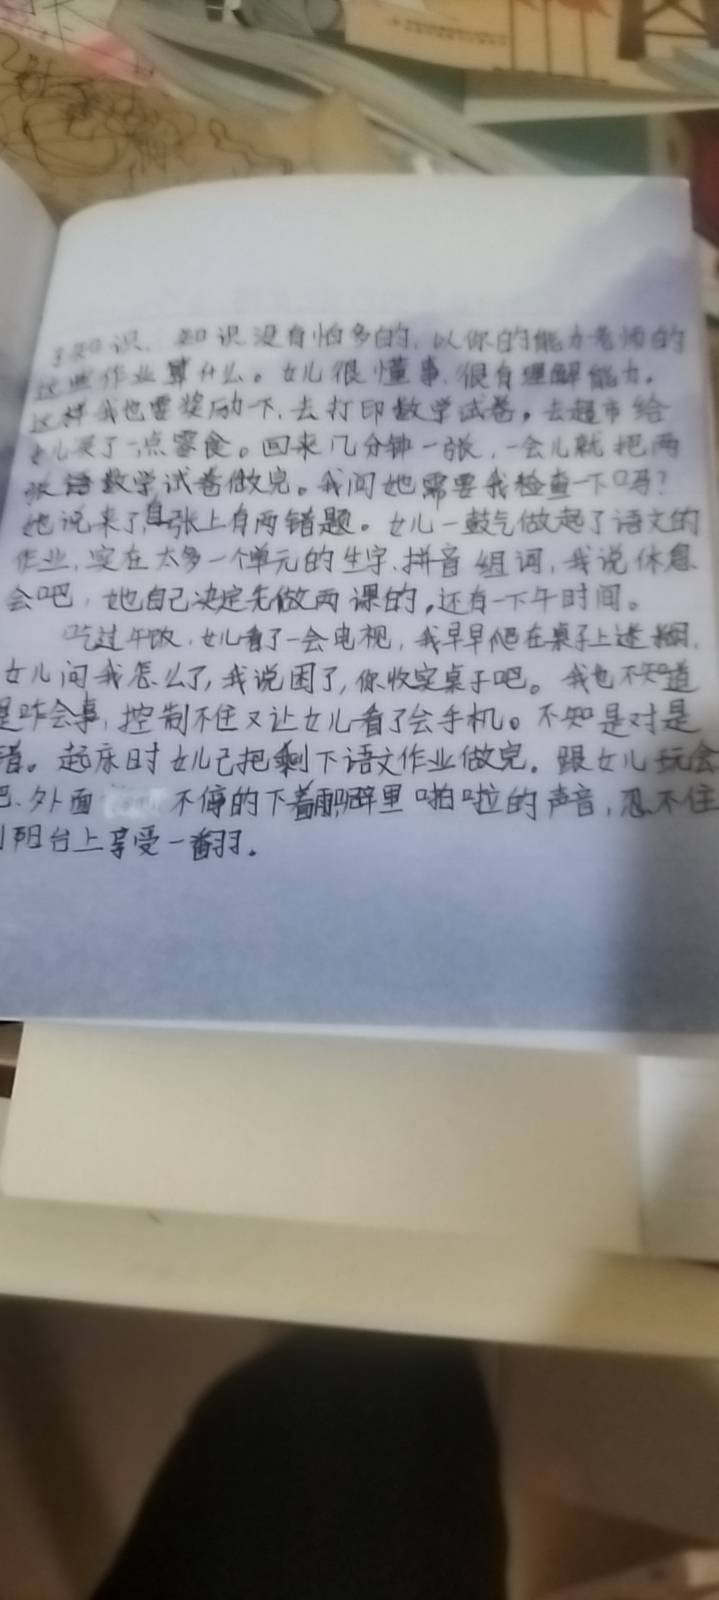 知识，知识没有怕多的，以你的能力老师的
这些作业算什么。女儿很懂事，很有理解能力。
这样我也要奖励一下，去打印数学试卷，去超市给
女儿买了一点零食。回来几分钟一张，一会儿就把两
张语数学试卷做完。我问她需要我检查一下吗？
她说来了，每张上有两错题。女儿一鼓气做起了语文的
作业，实在太多一个单元的生字、拼音组词，我说休息
会吧，她自己决定先做两课的，还有一下午时间。
吃过午饭，女儿看了一会电视，我早早爬在桌子上迷糊，
女儿问我怎么了，我说困了，你收实桌子吧。我也不知道
是咋会事，控制不住又让女儿看了会手机。不知是对是
错。起床时女儿已把剩下语文作业做完。跟女儿玩会
吧，外面不停的下着雨噼里啪啦的声音，忍不住
到阳台上享受一翻。